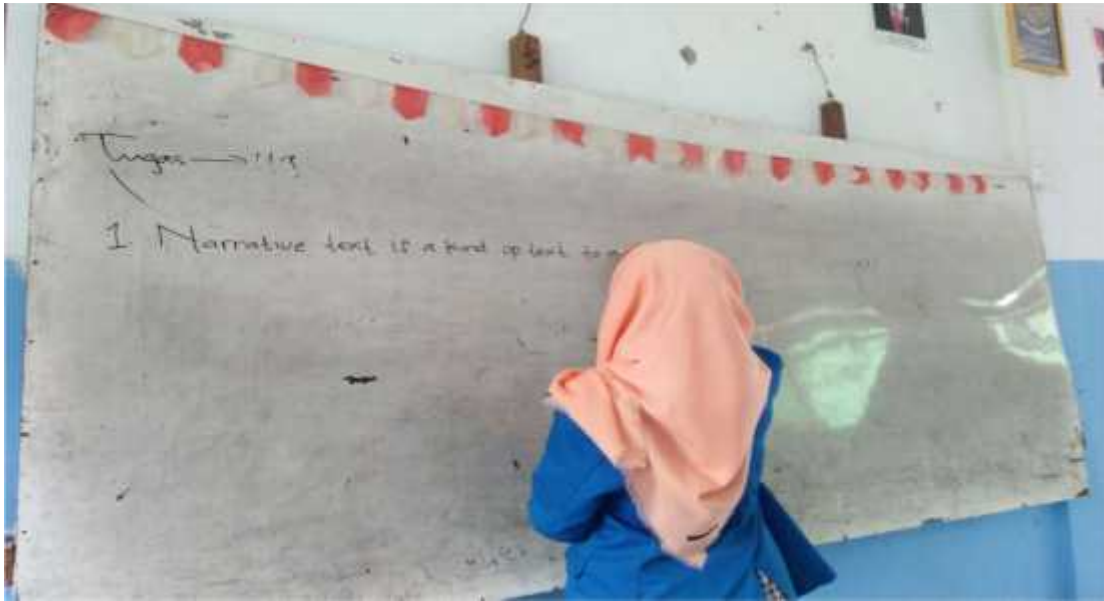 Tugas →
1 Narrative text is a kind of text to a